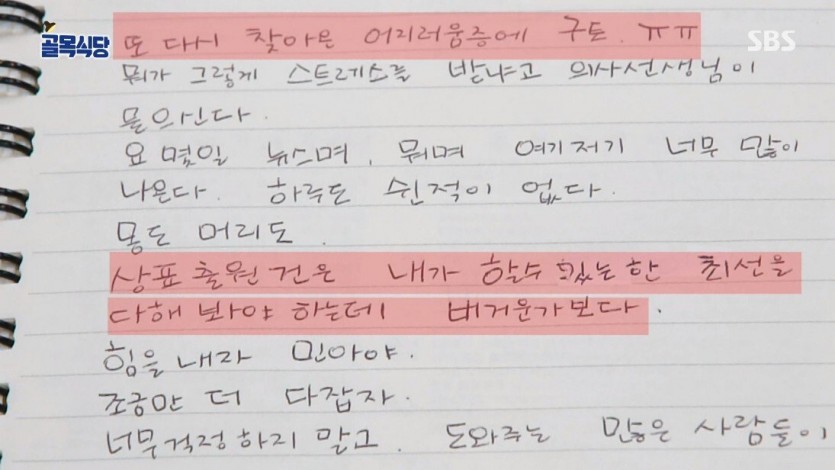 골목식당
SBS
또 다시 찾아온 어지러움증에 구토. ㅠㅠ
뭐가 그렇게 스트레스를 받냐고 의사선생님이
물으신다.
요 몇일 뉴스며, 뭐며 여기저기 너무 많이
나온다. 하루도 쉰적이 없다.
몸도 머리도.
상표출원건은 내가 할수 있는한 최선을
다해 봐야 하는데 버거운가보다.
힘을 내라 민아야.
조금만 더 다잡자.
너무걱정하지 말고. 도와주는 많은 사람들이